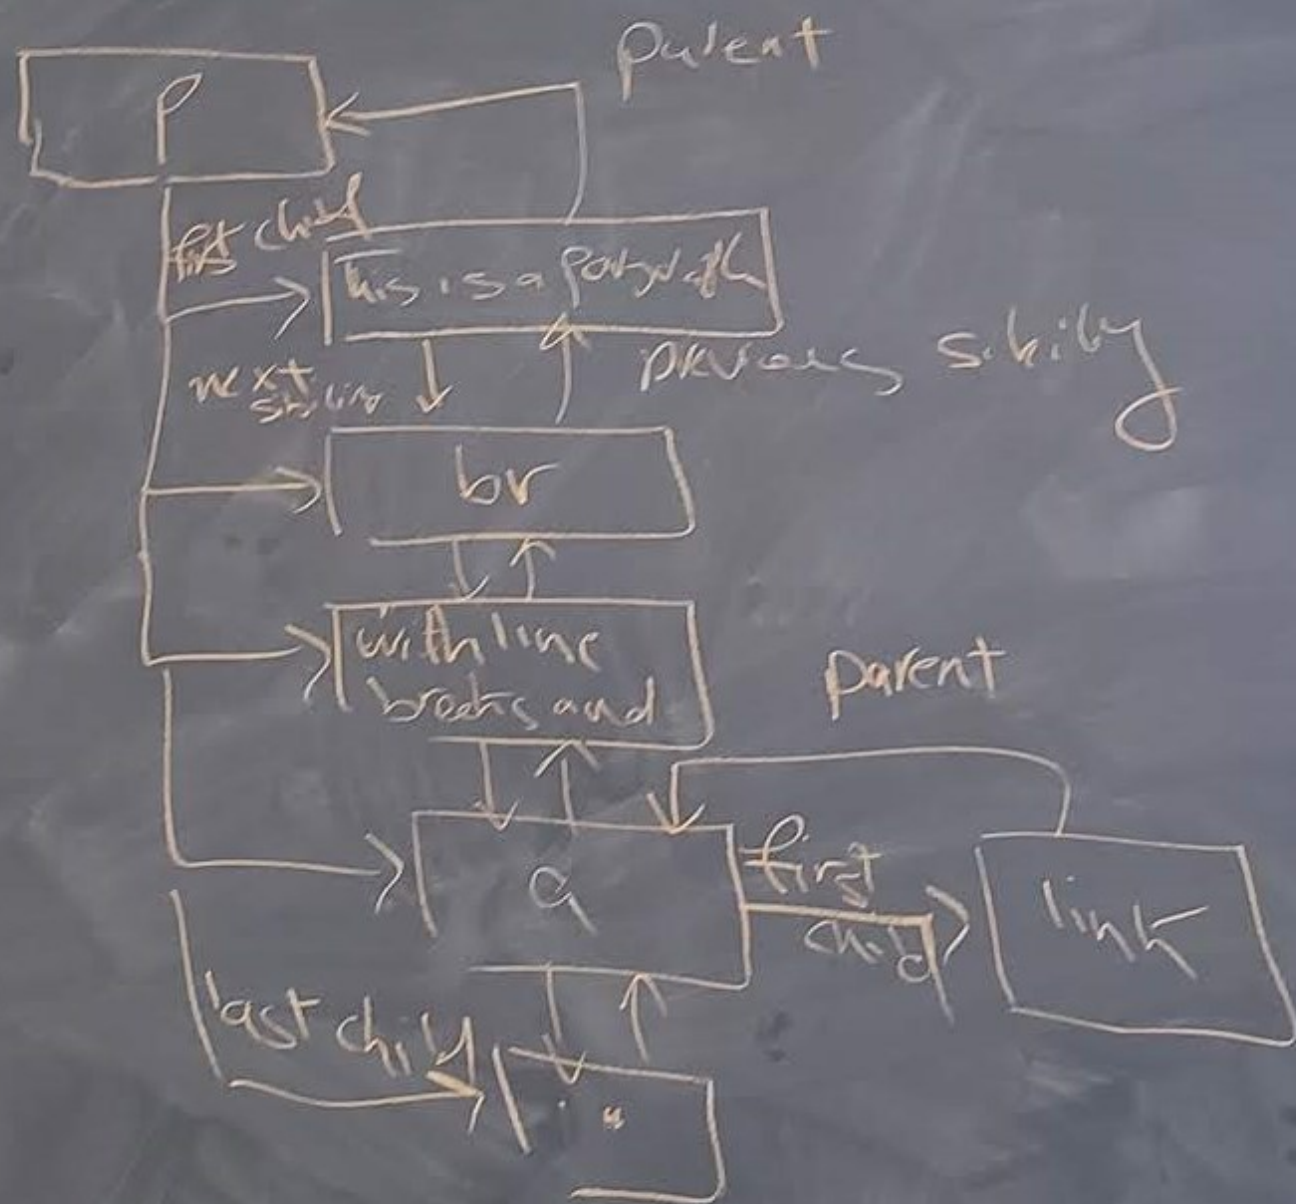 parent
P
first child
This is a paragraph
next
sibling
previous sibling
br
with line
breaks and
parent
a
first
child
link
last child